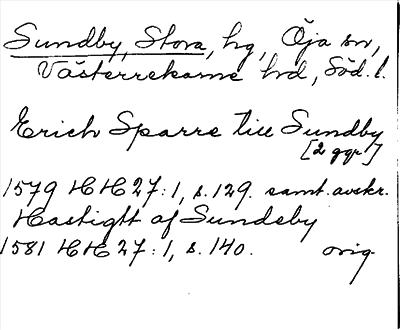 Sundby, Stora, hg, Öja sn,
Västerrekarne hd, Söd. l.
Erich Sparre till Sundby
[2 ggr]
1579 HH 27:1, s. 129. samt. avskr.
Hastigtt af Sundeby
1581 HH 27:1, s. 140. orig.